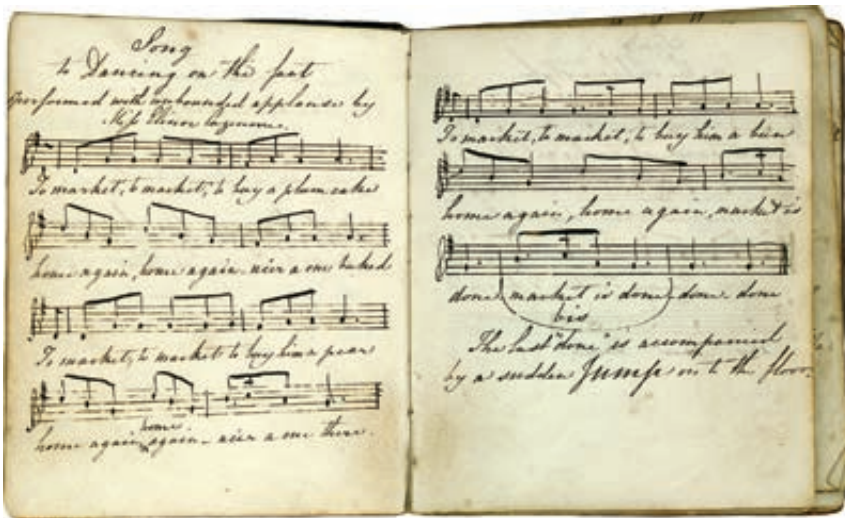 Song
to Dancing on the feet
performed with unbounded applause by
Miss Elinor
To market, to market, to buy a plum cake
home again, home again. ne'er a one baked
To market, to market to buy him a pear
home again home again - ne'er a one there.
To market, to market, to buy him a bun
home again, home again, market is
done market is done done. done
bis
The last "done" is accompanied
by a sudden Jump on to the floor.